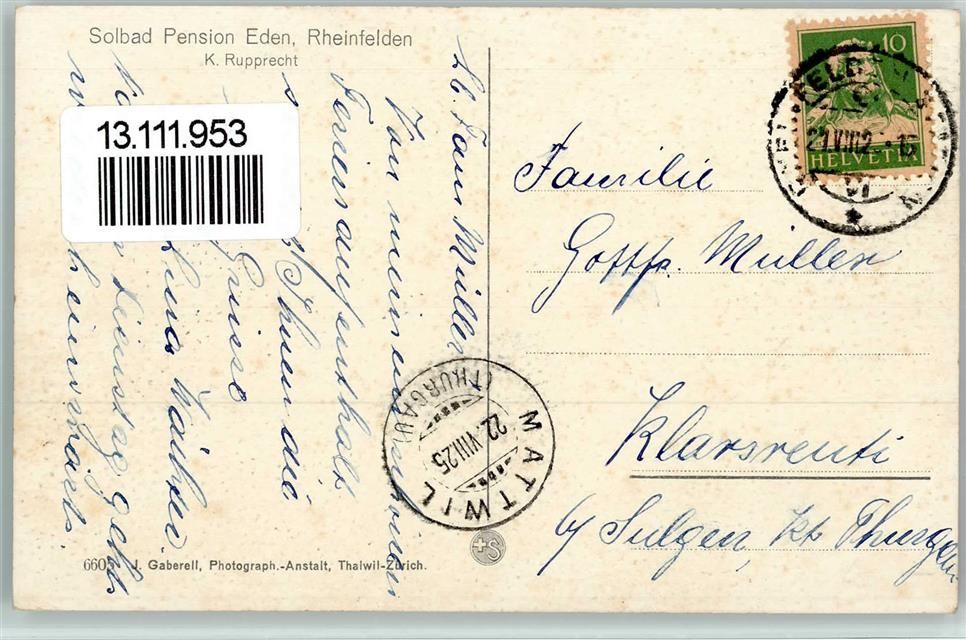 Solbad Pension Eden, Rheinfelden
K. Rupprecht
13.111.953
Lb. Fam. Müller
Von meinem
Ferienaufenthalt
Ihnen die
Grüsse
Lina
Dienstag geht's
heimwärts
10
HELVETIA
Familie
Gottfr. Müller
Klarsreuti
b/ Sulgen, Kt. Thurgau
MATTWIL
(THURGAU)
22.VIII.25
J. Gaberell, Photograph.-Anstalt, Thalwil-Zürich.